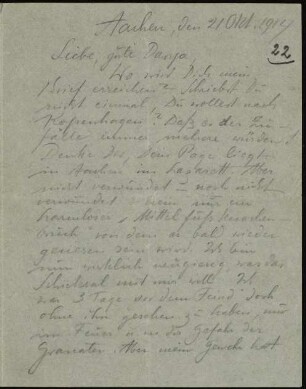 Aachen, den 21 Okt. 1914
22
Liebe, gute Danja,
Wo wird Dich mein
Brief erreichen? Schriebst Du
nicht einmal, Du wollest nach
Kopenhagen? Daß es der Zu-
fälle immer mehr würden!
Denke Dir, Dein Page liegt
in Aachen im Lazarett. Aber
nicht verwundet – noch nicht
verwundet – nein nur ein
harmloser „Mittelfußknochen
bruch" von dem er bald wieder
genesen sein wird. Ich bin
nun wirklich neugierig was das
Schicksal mit mir will. Ich
war 3 Tage vor dem Feind, doch
ohne ihn gesehen zu haben, nur
im Feuer u. in der Gefahr der
Granaten. Aber mein Gewehr hat